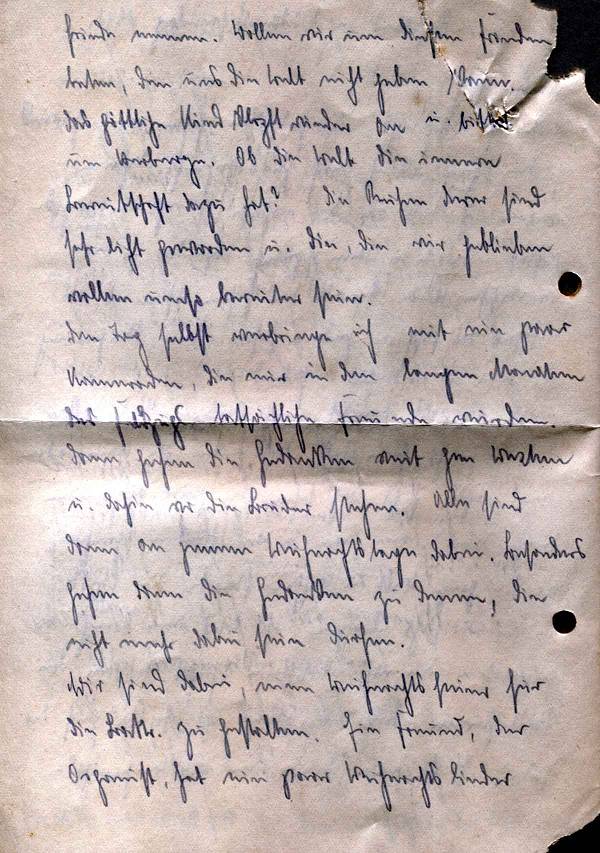 Friede nennen. Wollen wir um diesen Frieden
beten, den uns die Welt nicht geben kann.
Das göttliche Kind klopft wieder an u. bittet
um Herberge. Ob die Welt die innere
Bereitschaft dazu hat? Die Reihen derer sind
sehr licht geworden u. die, die wir geblieben
wollen umso bereiter sein.
Den Tag selbst verbringe ich mit ein paar
Kameraden, die mir in den langen Monaten
des Feldzugs tatsächliche Freunde wurden.
Dann gehen die Gedanken mit gen Westen
u. dahin wo die Brüder stehen. Alle sind
dann an jenem Weihnachtstage dabei. Besonders
gehen dann die Gedanken zu denen, die
nicht mehr dabei sein dürfen.
Wir sind dabei, eine Weihnachtsfeier für
die Battr. zu gestalten. Ein Freund, der
Organist, hat ein paar Weihnachtslieder